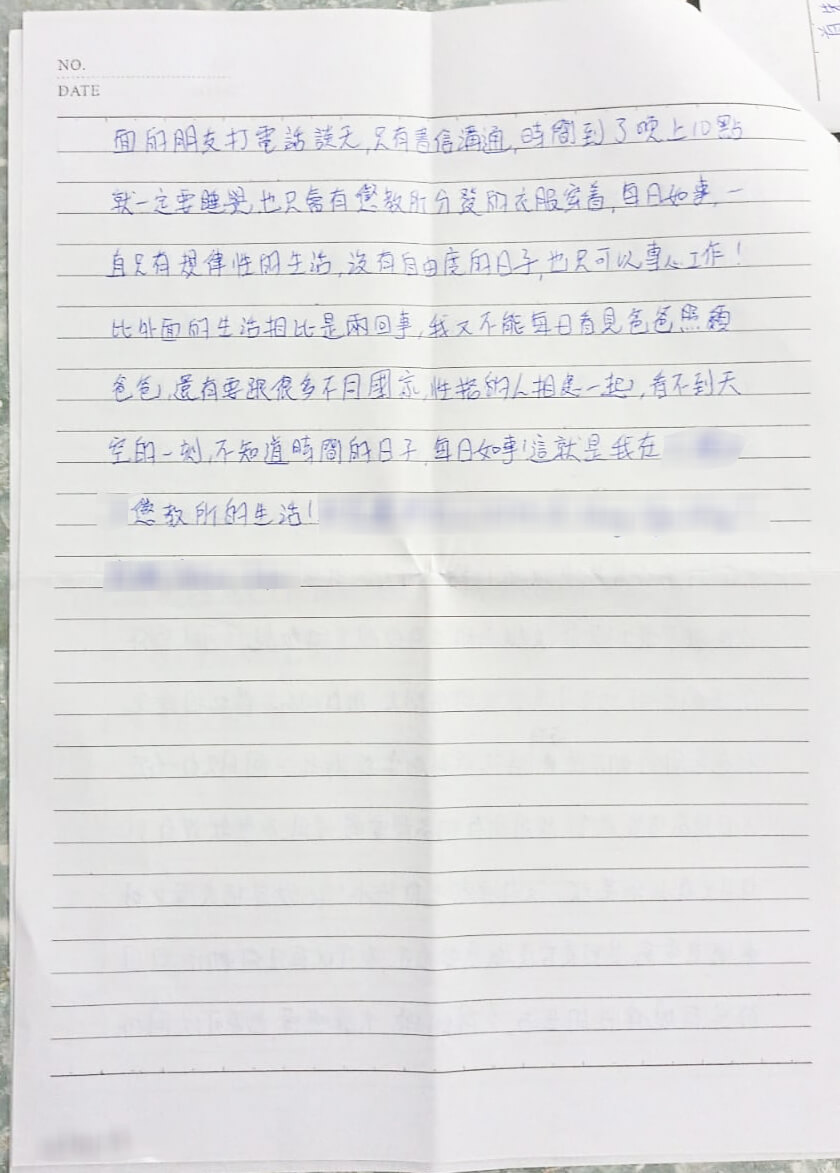 NO.
DATE
面的朋友打電話談天,只有書信溝通,時間到了晚上10點
就一定要睡覺,也只需有懲教所分發的衣服穿着,每日如事,一
直只有規律性的生活,沒有自由度的日子,也只可以專心工作!
比外面的生活相比是兩回事,我又不能每日看見爸爸照顧
爸爸,還有要跟很多不同國家,性格的人相處一起,看不到天
空的一刻,不知道時間的日子,每日如事!這就是我在
懲教所的生活!